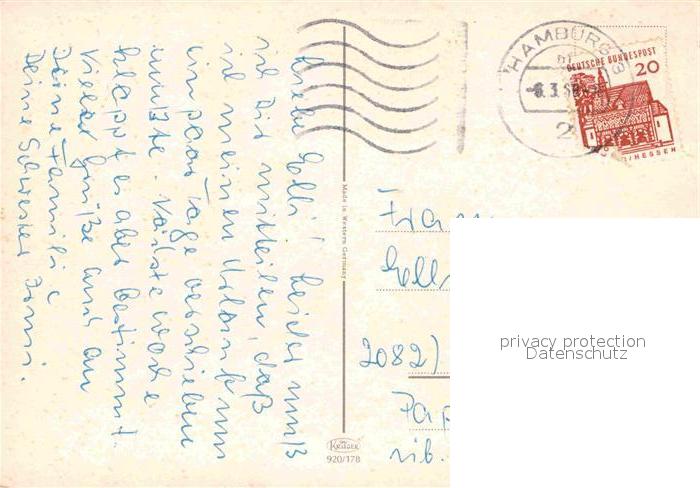 Liebe Elli! Leider muß
ich Dir mitteilen, daß
ich meinen Urlaub um
ein paar Tage verschieben
mußte. Nächste Woche
klappt es aber bestimmt.
Viele Grüße auch an
Deine Familie
Deine Schwester
Made in Western Germany
KRÜGER
920/178
HAMBURG
DEUTSCHE BUNDESPOST
20
/HESSEN
2
Frau
2082)
privacy protection
Datenschutz